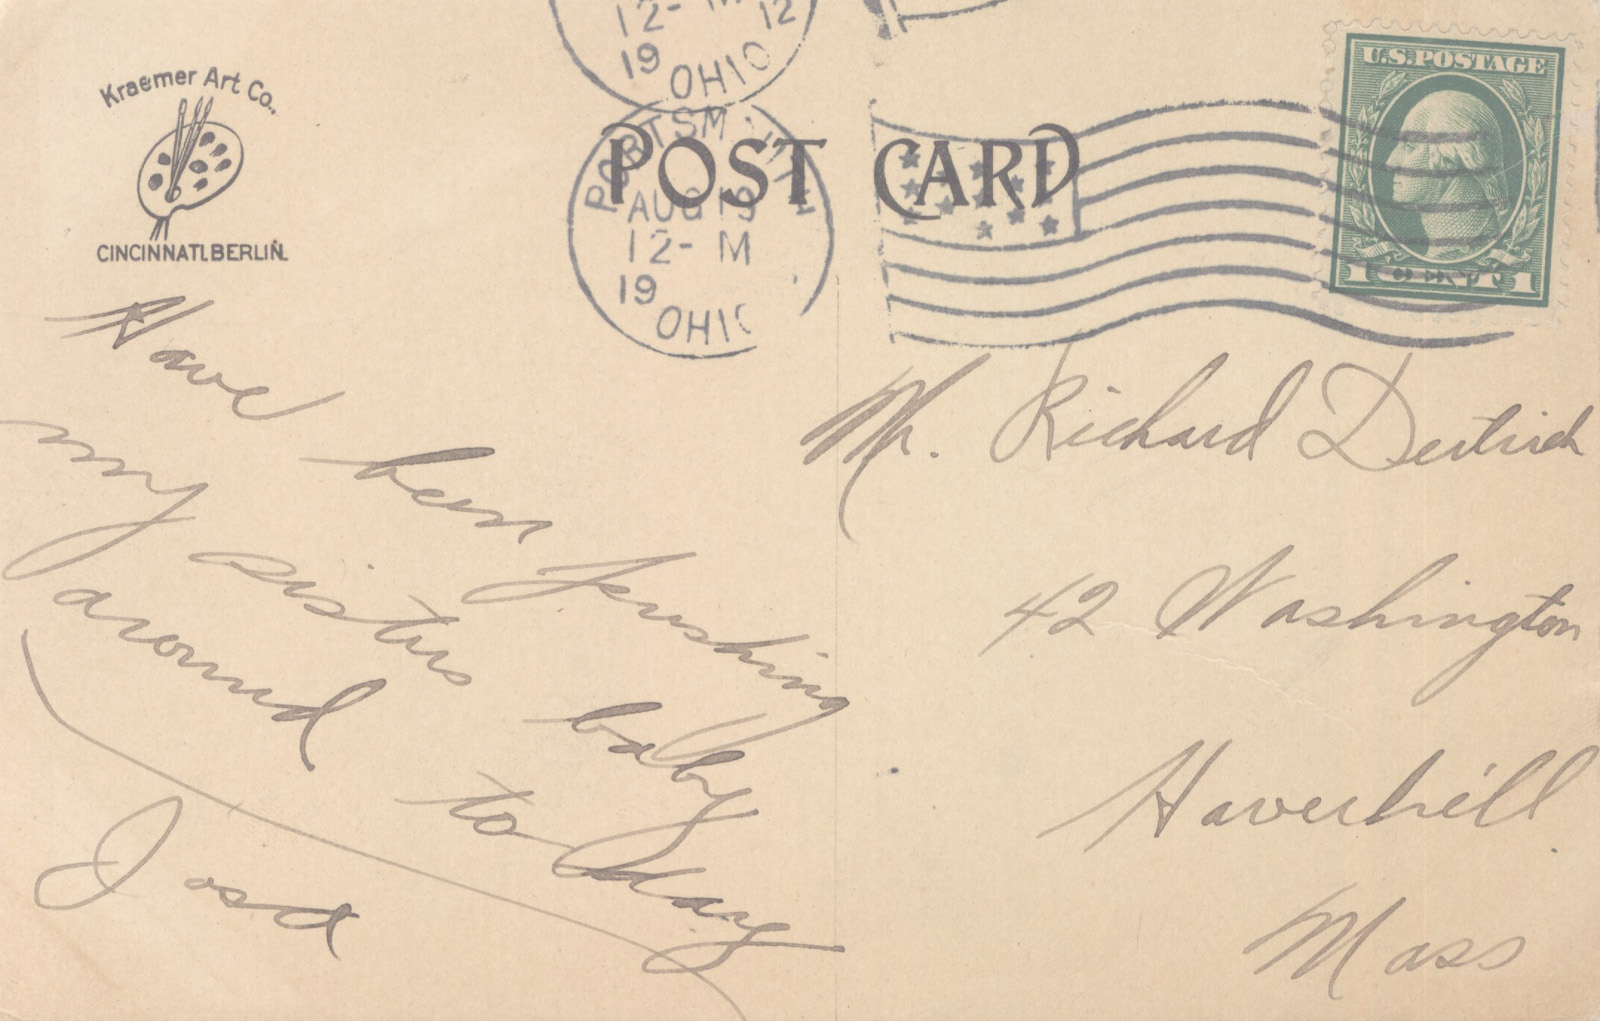 Kraemer Art Co.
CINCINNATI. BERLIN.
12- M 12
19
OHIO
PORTSMOUTH
AUG 19
12- M
19
OHIO
POST CARD
U.S. POSTAGE
1 CENT 1
Have been pushing
my sisters baby
around to day
Mr. Richard
42 Washington
Haverhill
Mass